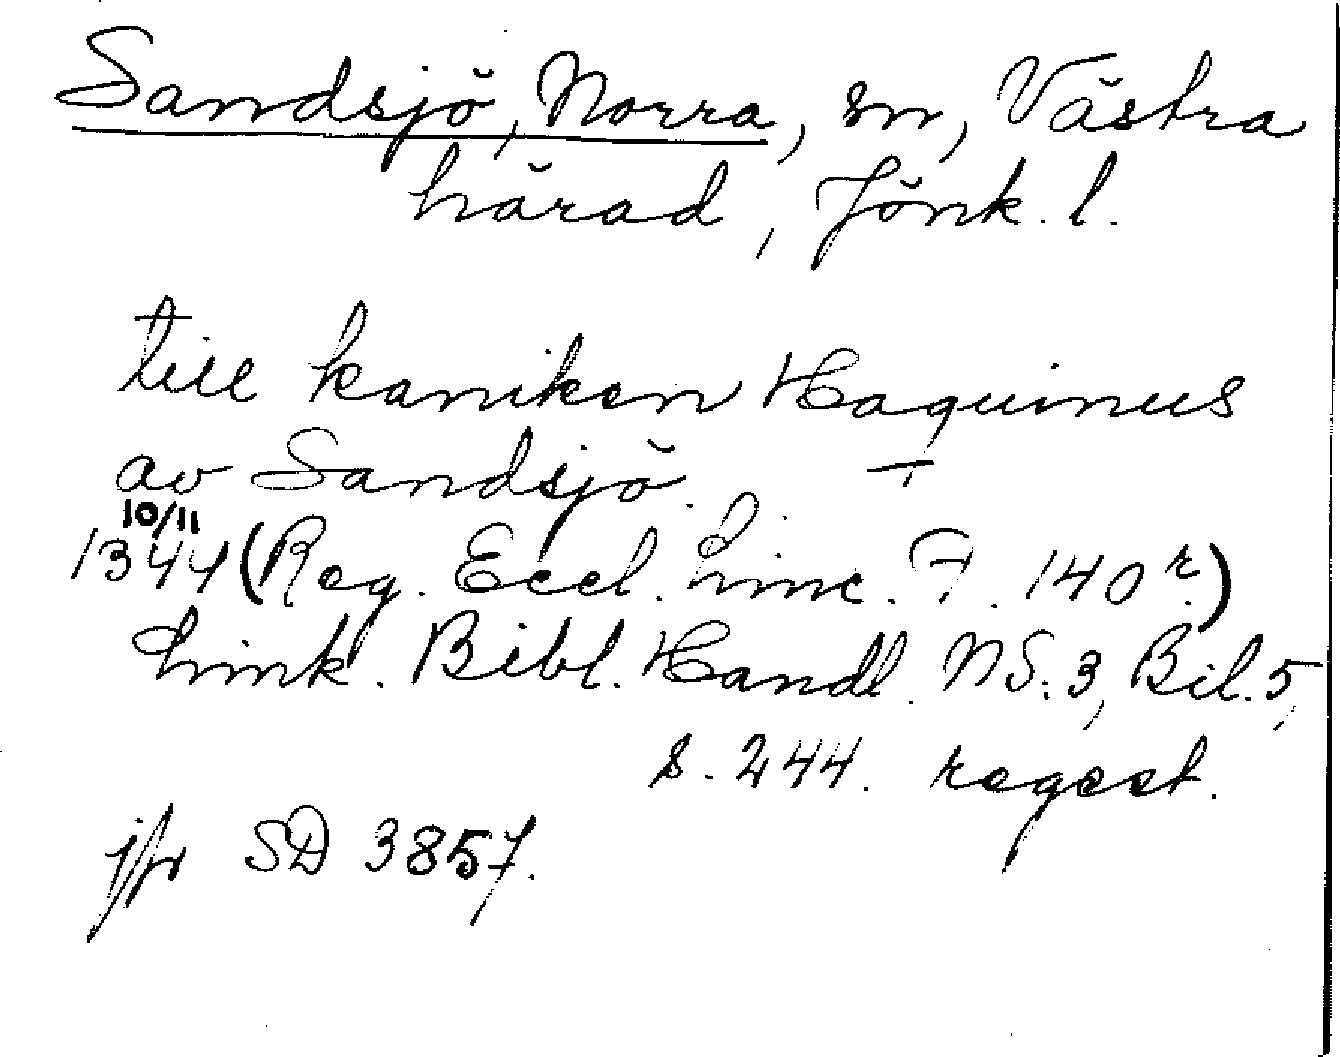 Sandsjö, Norra, Sm, Västra
härad, Jönk. l.
till kaniken Haquinus
av Sandsjö.
10/11
1344 (Reg. Eccl. Linc. F. 140 r.)
Link. Bibl. Handl. NS: 3, Bil. 5,
s. 244. regest.
jfr SD 3857.